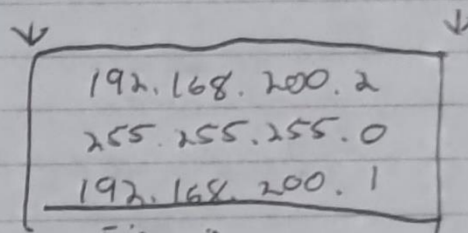 192.168.200.2
255.255.255.0
192.168.200.1